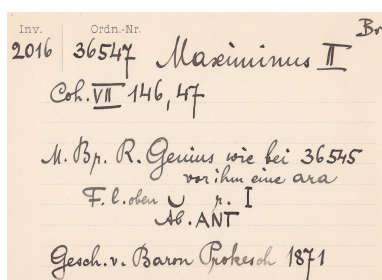 Inv. Ordn.-Nr. Br
2016 36547 Maximinus II
Coh. VII 146, 47
M. Bp. R. Genius wie bei 36545
vor ihm eine ara
F. l. oben ∪ r. I
Ab. ANT
Gesch. v. Baron Prokesch 1871